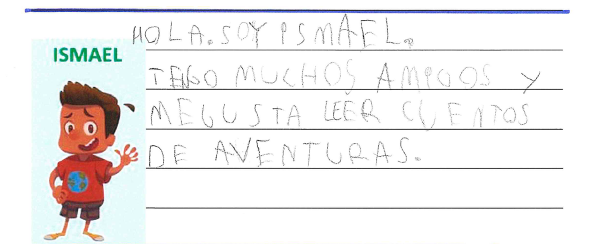 HOLA. SOY ISMAEL.
ISMAEL
TENGO MUCHOS AMIGOS Y
ME GUSTA LEER CUENTOS
DE AVENTURAS.